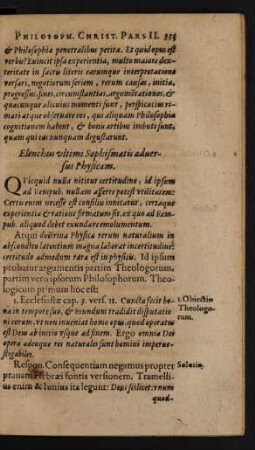 PHILOSOPH. CHRIST. PARS II. 335
& Philosophiæ penetralibus petita. Et quid opus est
verbis? Euincit ipsa experientia, multo maiore dex-
teritate in sacris literis earumque interpretatione
versari, negotiorum seriem, rerum causas, initia,
progressus, fines, circumstantias, argumētationes, &
quæcunque alicuius momenti sunt, perspicacius ri-
mari atque obseruare eos, qui aliquam Philosophiæ
cognitionem habent, & bonis artibus imbuti sunt,
quam qui eas nunquam degustarunt.
Elenchus vltimi Sophismatis aduer-
sus Physicam.
QVicquid nulla nititur certitudine, id ipsum
ad Rempub. nullam afferre potest vtilitatem:
Certū enim necesse est consiliū innitatur, certaque
experientia & ratione firmatum sit, ex quo ad Rem-
pub. aliquod debet exundare emolumentum.
Atqui doctrina Physica rerum naturalium in
absconditu latentium magna laborat incertitudine:
certitudo admodum rara est in physicis. Id ipsum
probatur argumentis partim Theologorum,
partim vero ipsorum Philosophorum. Theo-
logicum primum hoc est:
1. Ecclesiastæ cap. 3. vers. 11. Cuncta fecit bona
in tempore suo, & mundum tradidit disputationi
eorum, vt non inueniat homo opus quod operatus
est Deus ab initio vsque ad finem. Ergo omnia Dei
opera adeoque res naturales sunt homini imperue-
stigabiles.
1. Obiectio
Theologo-
rum.
Respon. Consequentiam negamus propter
prauam Hebræi fontis versionem. Tremelli-
us enim & Iunius ita legunt: Deus scilicet vnum
Solutio.
quod-